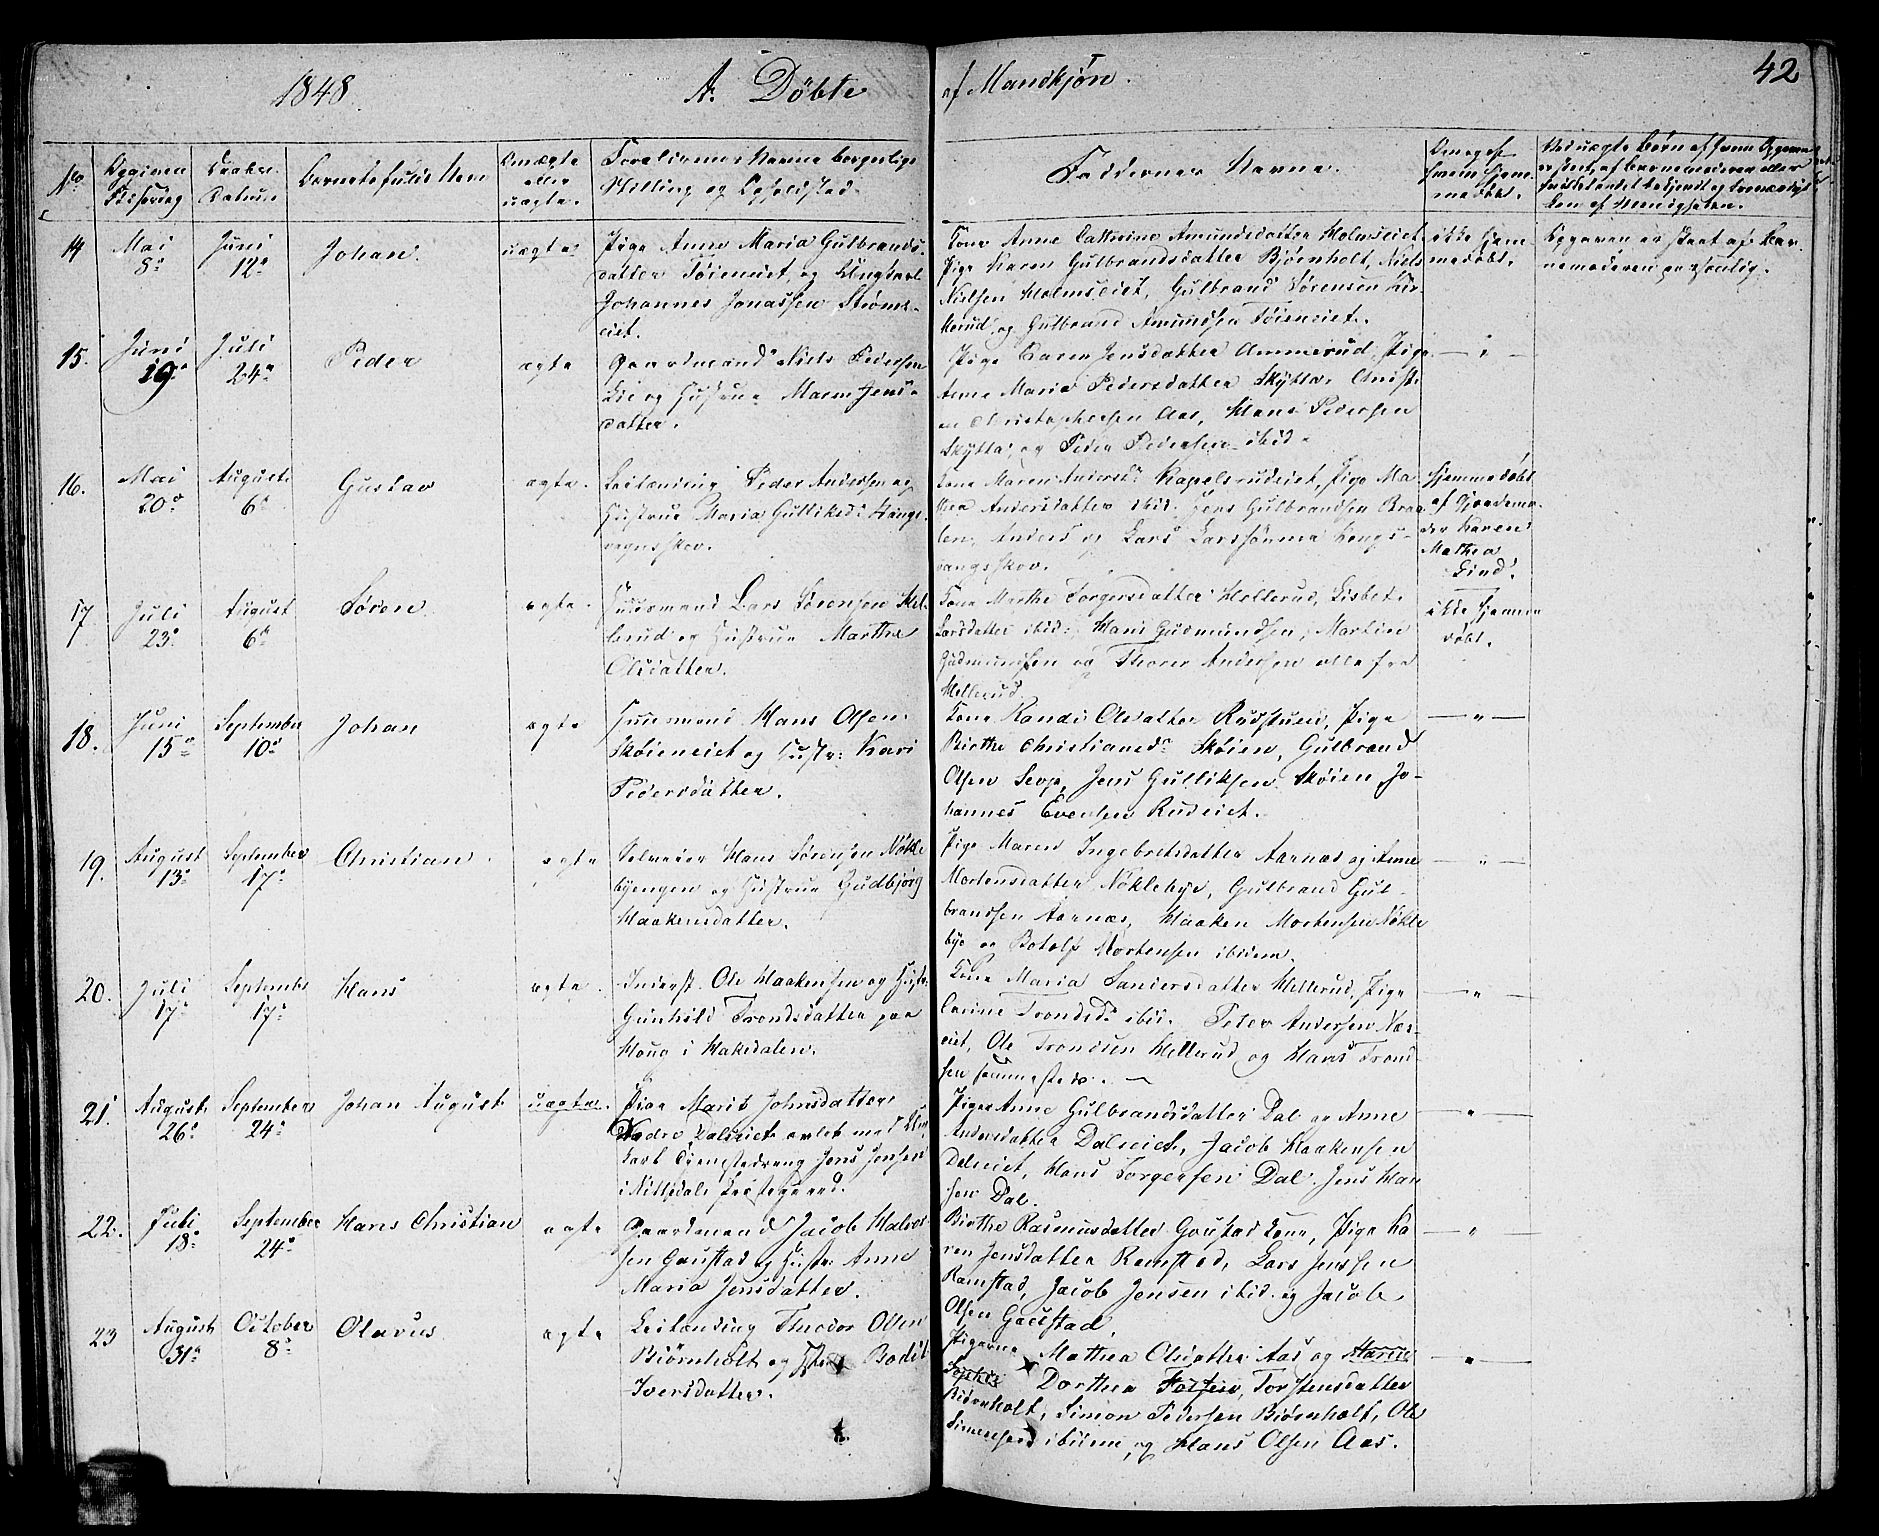 1848. A. Døbte af Mandkjøn. 42
No
Dato.
Barnets fulde Navn
Om ægte
eller
uægte.
Forældrenes Navne borgerlige
Stilling og Opholdsted.
Faddernes Navne.
14
Mai
8de
Juni
12te
Johan.
uægte
Pige Anne Maria Gulbrands-
datter Tøieneiet, og Ungkarl
Johannes Jonassen Strøms-
eiet.
Kone Anne Cathrine Amundsdatter Holmseiet
Pige Karen Gulbrandsdatter Bjørnholt, Niels
Nielsen Holmseiet, Gulbrand Sørensen
og Gulbrand Amundsen Tøieneiet.
ikke hjem-
medøbt.
Opgaven er skeet af Bar-
nemoderen personlig.
15.
Juni
29
Juli
24de
Peder
ægte
Gaardmand Niels Pedersen
Lie og Hustrue Maren Jens-
datter.
Pige Karen Jensdatter Ammerud, Pige
Anne Maria Pedersdatter Skyttar, Christi-
an Christophersen Aas, Hans Pedersen
Skytta, og Peder Pedersen ibid.
— " —
16.
Mai
20de
August
6te
Gustav
ægte.
Leilænding Peder Andersen og
Hustrue Maria Gulliksd:
vangsskov.
Kone Maren Andersdr Kapelsrudeiet, Pige Ma-
thea Andersdatter ibid. Jens Gulbrandsen Braa-
ten, Anders og Lars Larssønner Kongs-
vangsskov.
Hjemmedøbt
af Gjordemo-
der Karen
Mathea
Lind.
17.
Juli
23de
August
6te
Søren
ægte.
Huusmand Lars Sørensen Hel-
lerud og Hustrue Marthe
Olsdatter.
Kone Marthe Torgersdatter Hellerud, Lisbet
Larsdatter ibid: Hans Gudmundsen, Martin
Gudmundsen og Thorer Andersen alle fra
Hellerud.
ikke hjemme
døbt.
18.
Juni
15de
September
10de
Johan
ægte
Huusmand Hans Olsen
Skøieneiet og Hustr: Kari
Pedersdatter.
Kone Randi Olsdatter Rudstuen, Pige
Birthe Christiansdr Skøien, Gulbrand
Olsen Jens Gulliksen Skøien, Jo-
hannes Evensen Rudeiet.
— " —
19.
August
13de
September
17de
Christian
ægte
Selveier Hans Sørensen Nøkle
byengen og Hustrue Gudbjørg
Haakensdatter.
Pige Maren Ingebretsdatter Aarnæs og Anne
Mortensdatter Nøklebye, Gulbrand Gul-
brandsen Aarnæs, Haaken Mortensen Nøkle
bye og Botolf Mortensen ibidem.
— " —
20.
Juli
17de
September
17de
Hans
ægte.
Inderst Ole Haakensen og Hustr:
Gunhild Trondsdatter paa
Houg i Hakedalen.
Kone Maria Sandersdatter Hellerud, Pige
Carine Trondsdr ibid. Peder Andersen Nær-
eiet, Ole Trondsen Hellerud og Hans Trond-
sen sammesteds.
— " —
21.
August
26de
September
24de
Johan August
uægte.
Pige Marit Johnsdatter
Nedre Dalseiet avlet med Ung-
karl Tjenestedreng Jens Jensen
i Nittedals Præstegaard.
Piger Anne Gulbrandsdatter Dal og Anne
Andersdatter Dalseiet, Jacob Haakensen
Dalseiet, Hans Torgersen Dal. Jens Han
sen Dal.
— " —
22.
Juli
18de
September
24de
Hans Christian
ægte
Gaardmand Jacob Halvor-
sen Gaustad og Hustr: Anne
Maria Jensdatter.
Birthe Rasmusdatter Goustad Kone, Pige Ka
ren Jensdatter Ramstad, Lars Jenssen
Ramstad, Jacob Jensen ibid. og Jacob
Olsen Gaustad.
— " —
23
August
31te
October
8de
Olavus
ægte
Leilænding Theodor Olsen
Biørnholt og Hustr: Bodil
Iversdatter.
Pigerne Mathea Olsdatter Aas og Marie
Sophie Dorthea Torstensdatter
Biørnholt, Simon Pedersen Biørnholt, Ole
Simensen ibidem, og Hans Olsen Aas.
— " —